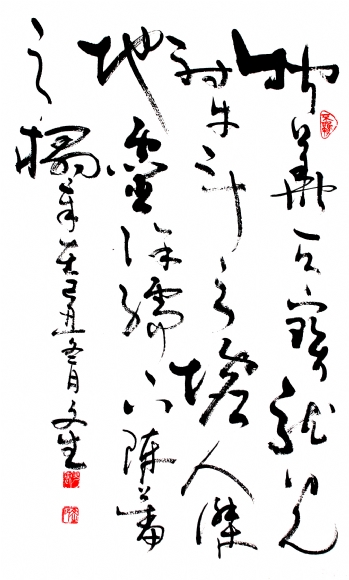 物華天寶龍光
射牛斗之墟人傑
地靈徐孺下陳蕃
之榻 己丑冬月文生